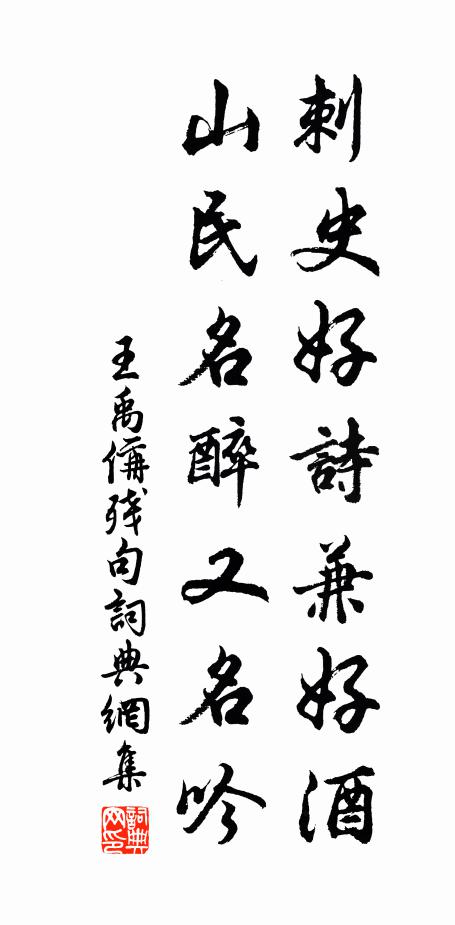 刺史好詩兼好酒
山民名醉又名吟
王禹偁残句詞典網集
詞典网印